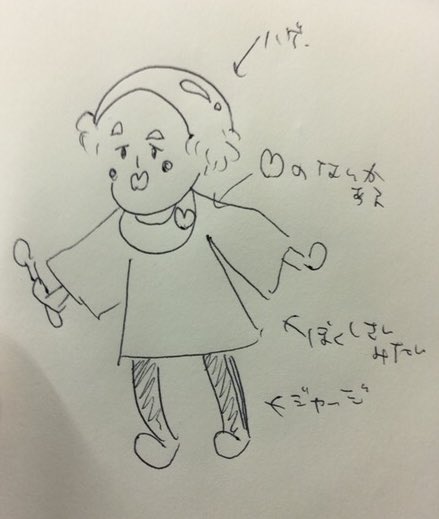 ハゲ
♡のなんか
ある
ぼくしさん
みたい
ジャージ